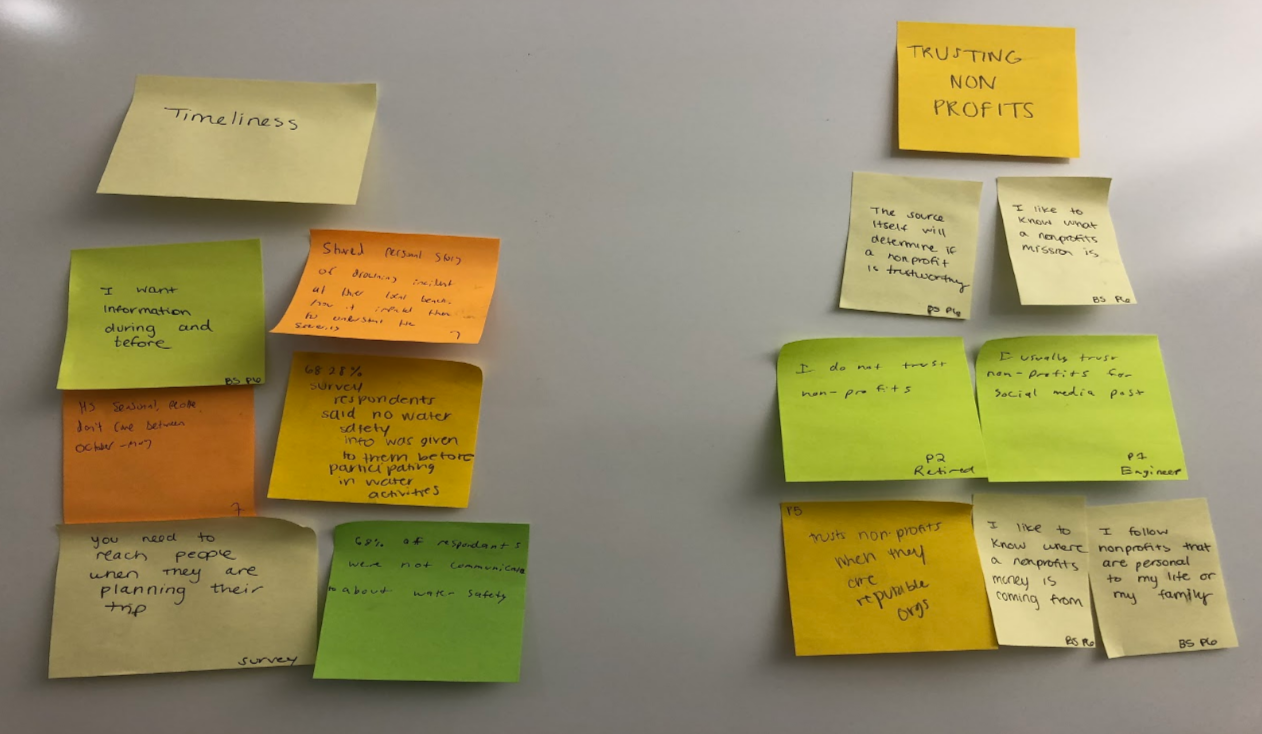 Timeliness
I want
information
during and
tefore
BS P6
Shared personal story
of drowning incident
at their local beach,
how it
them
to understand the
7
Its seasonal, people
don't care between
October -
7
68.28%
survey
respondents
said no water
safety
info was given
to them before
participating
in water
activities
you need to
reach people
when they are
planning their
trip
survey
68% of respondents
were not communicate
about water safety
TRUSTING
NON
PROFITS
The source
itself will
determine if
a nonprofit
is trustworthy
BS P6
I like to
know what
a nonprofits
mission is
BS P6
I do not trust
non-profits
P2
Retired
I usually trust
non-profits for
social media post
P1
Engineer
P5
trusts non-profits
when they
are
reputable
orgs
I like to
know where
a nonprofits
money is
coming from
BS P6
I follow
nonprofits that
are personal
to my life or
my family
BS P6